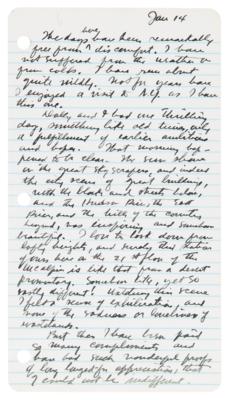 Jan 14
The days have been remarkably
free from discomfort. I have
not suffered from the weather or
from colds. I have run about
quite nimbly. Not for years have
I enjoyed a visit to N.Y. as I have
this one.
and I had one thrilling
day, something like old times, with
a fulfillment of earlier ambitions
and hopes. That morning hap-
pened to be clear. The sun shone
on the great sky scrapers, and indeed
the city seen
with the and streets below,
and the Hudson River, the East
River, and the hills of the country
beyond, was inspiring and
beautiful. I love to look down from
lofty heights, and surely this station
of ours here on the 21st floor of the
McAlpin is like that from a desert
promontory. Somehow like, yet so
vastly different! Watching this scene
I feel a sense of exhilaration, and
none of the sadness or loneliness of
wastelands.
But then I have been paid
so many compliments and
have had such wonderful proofs
of long longed-for appreciation, that
I could not be indifferent.